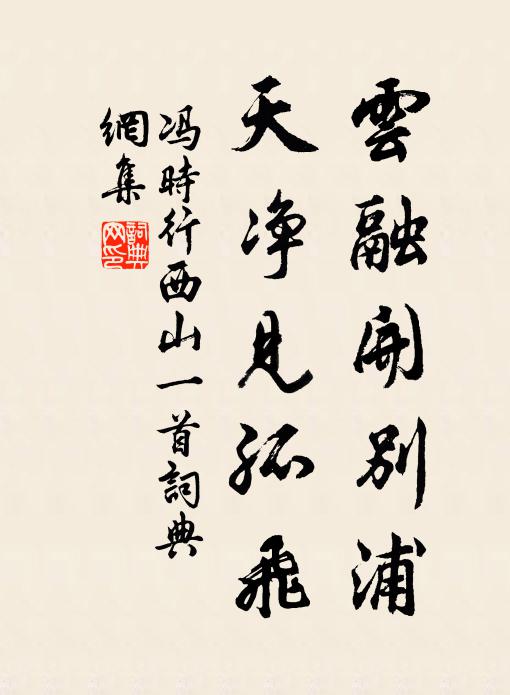 雲融開別浦
天净見孤飛
冯時行西山一首詞典
網集
詞典
网印